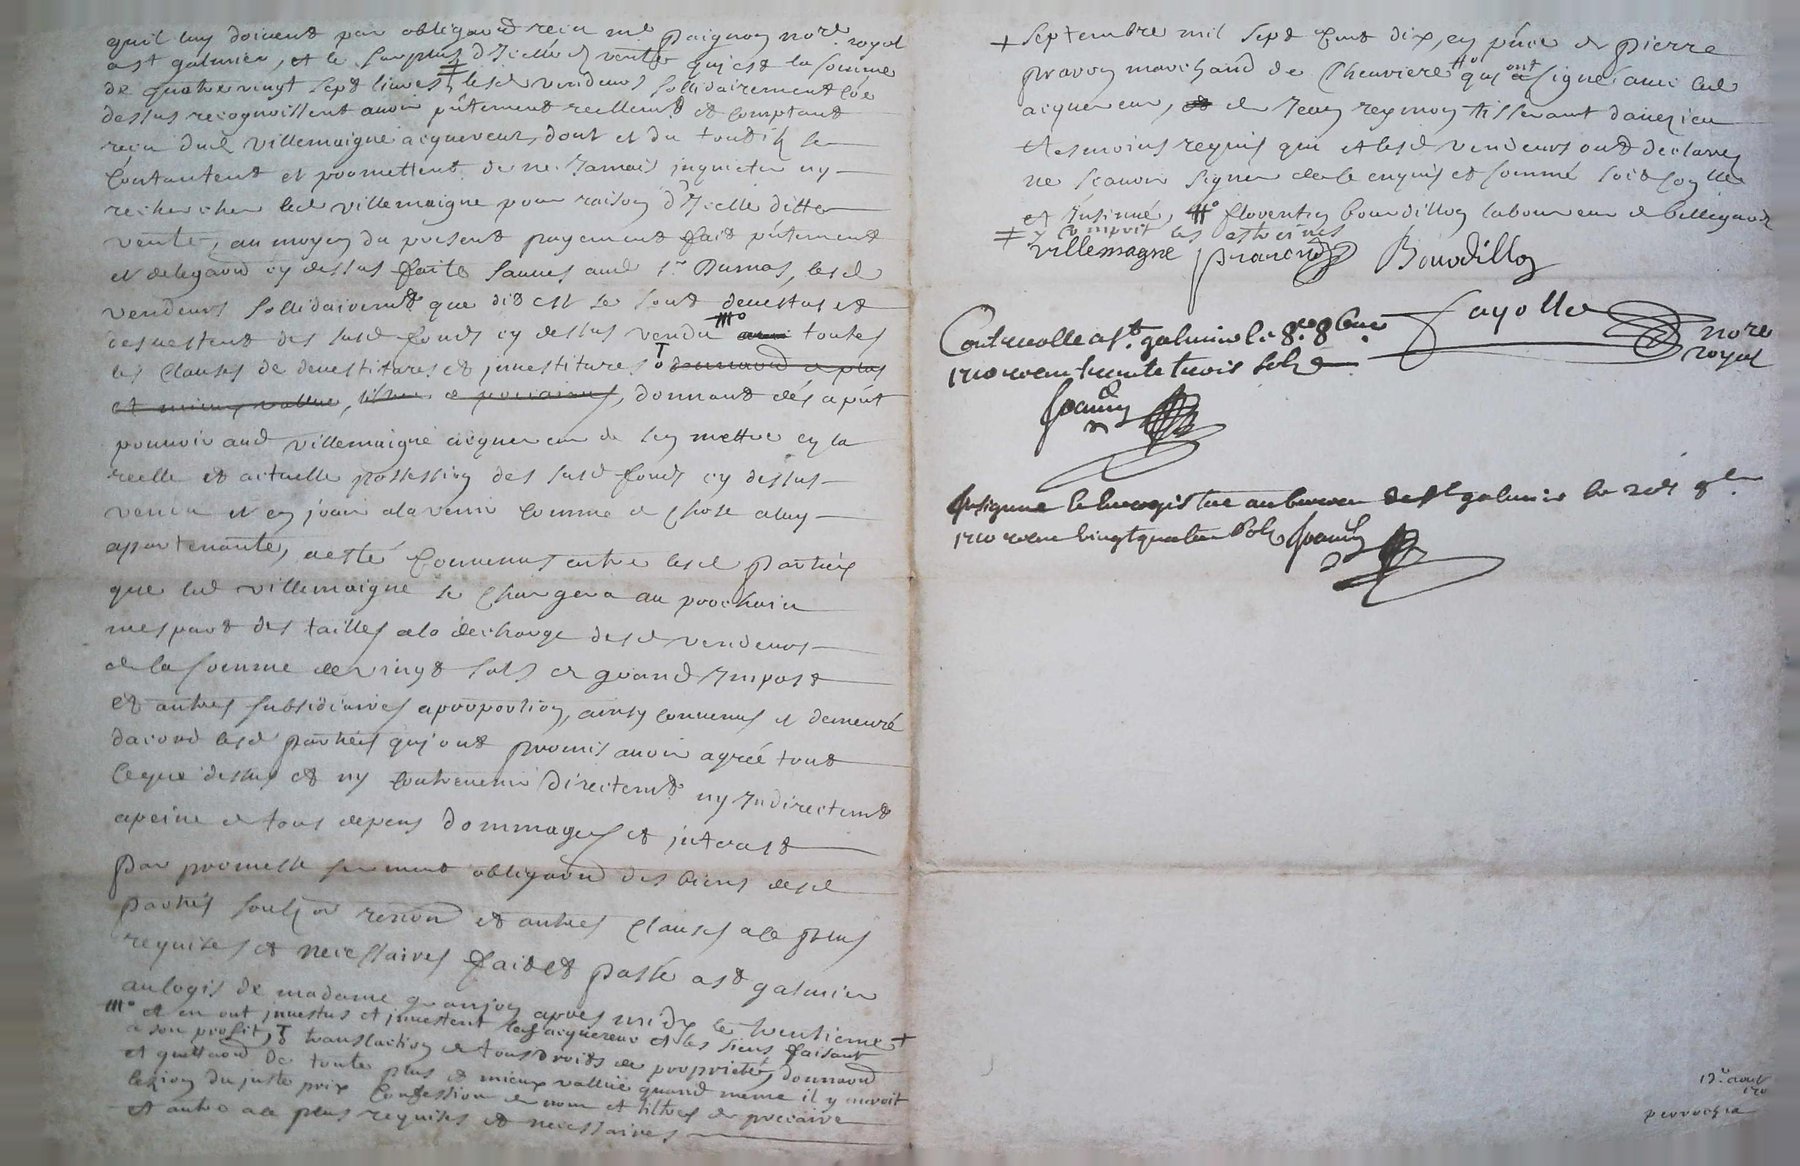 quil luy doivent par obligaõn receu me paignon nore royal
a st galmier, et le surplus d'Icelle d vente qui est la somme
de quatre vingt sept livres ‡ lesd vendeurs sollidairement côe
dessus recognoissent avoir pñtement reellemt et comptant
receu dud villemaigne acquereur, dont et du tout ilz se
contantent et promettent de ne Jamais inquieter ny
rechercher led villemaigne pour raison d'Icelle ditte
vente, au moyen du present payement fait pñtement
et delegaõn cy dessus faite aud sr Dumas, lesd
vendeurs sollidairemt que dit est se sont devestus et
desvestent des susd fonds cy dessus vendu #o toutes
les clauses de devestitures et investitures
donnant dés a pñt
pouvoir aud villemaigne acquereur de sen mettre en la
reelle et actuelle possession des susd fonds cy dessus
vendu et en jouir a lavenir comme de chose a luy
appartenante, a esté convenus entre lesd parties
que led villemaigne se chargera au prochain
mespart des tailles a la décharge desd vendeurs
de la somme de vingt sols de grand Impost
et autres subsidiaires a prouportion, ainsy convenus et demeuré
dacord lesd parties qui ont promis avoir agréé tout
ceque dessus et ny contrevenir directemt ny Indirectemt
a peine de tous depens dommages et interest
par promesse serment obligaõn des biens desd
parties renon et autres clauses a ce plus
requises et necessaires fait et passé a st galmier
au logis de madame granjon apres midy le trentieme +
#o et en ont investus et investent led acquereur et les siens faisant
a son profit, T translaction de tous droits de proprieté, donnaõn
et quittaõn de toute plus et mieux vallüe quand meme il y auroit
lezion du juste prix Confession de nom et tiltres de precaire
et autre a ce plus requises et necessaires
+ septembre mil sept cent dix, en pñce de pierre
pravon marchand de chevriere #o qui ont signé avec led
acquereur, de Jean reymon tisserant daveizieu
tesmoins requis qui et lesd vendeurs ont declarez
ne scavoir signer de ce enquis et sommé soit
et Insinué, #o floventin bourdillon laboureur de bellegarde
‡ y compris les estreines
villemagne pravond Bourdillon
fayolle nore
royal
Controolle a st galmier le 8bre
1710 receu trente trois sols
Insignue et enregistre au bureau de st galmier le 8bre
1710 receu vingt quatre sols
13e aout